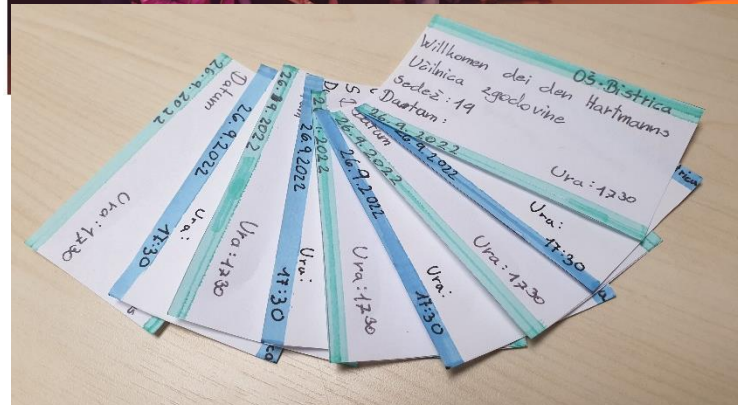 OŠ-Bistrica
Willkomen dei den Hartmanns
Učilnica zgodovine
Sedež: 19
Dantam:
26.9.2022
Ura: 1730
26.9.2022
Ura:1730
Datum
26.9.2022
Ura:
17:30
26.9.2022
Ura:1730
26.9.2022
Ura:
17:30
Ura:1730
26.9.2022
Ura:
17:30
26.9.2022
Ura: 1730
26.9.2022
Ura:
17:30